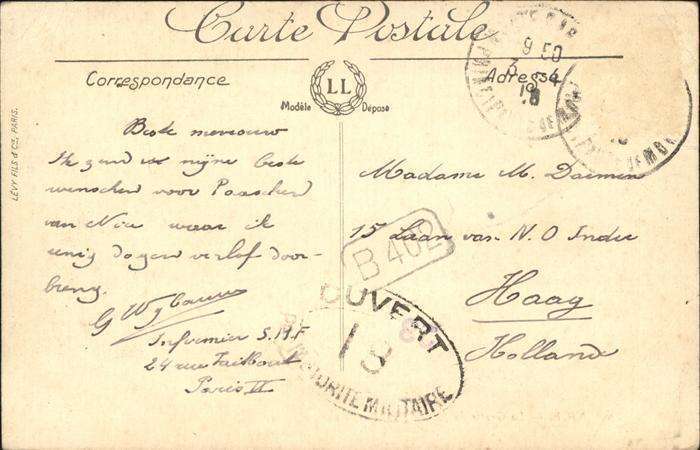 Carte Postale
Correspondance
Adresse
LL
Modèle Déposé
LÉVY FILS & Cie, PARIS.
Beste mevrouw
Ik zend u mijne beste
wenschen voor Paaschen
van Nice waar ik
eenig dagen verlof door-
breng.
G W J
Infirmier S.M.F
24 rue Taitbout
Paris II
Madame M. Daimen
15 Laan van N.O Indie
Haag
Holland
B 402
OUVERT
AUTORITÉ MILITAIRE
9 50
3
18